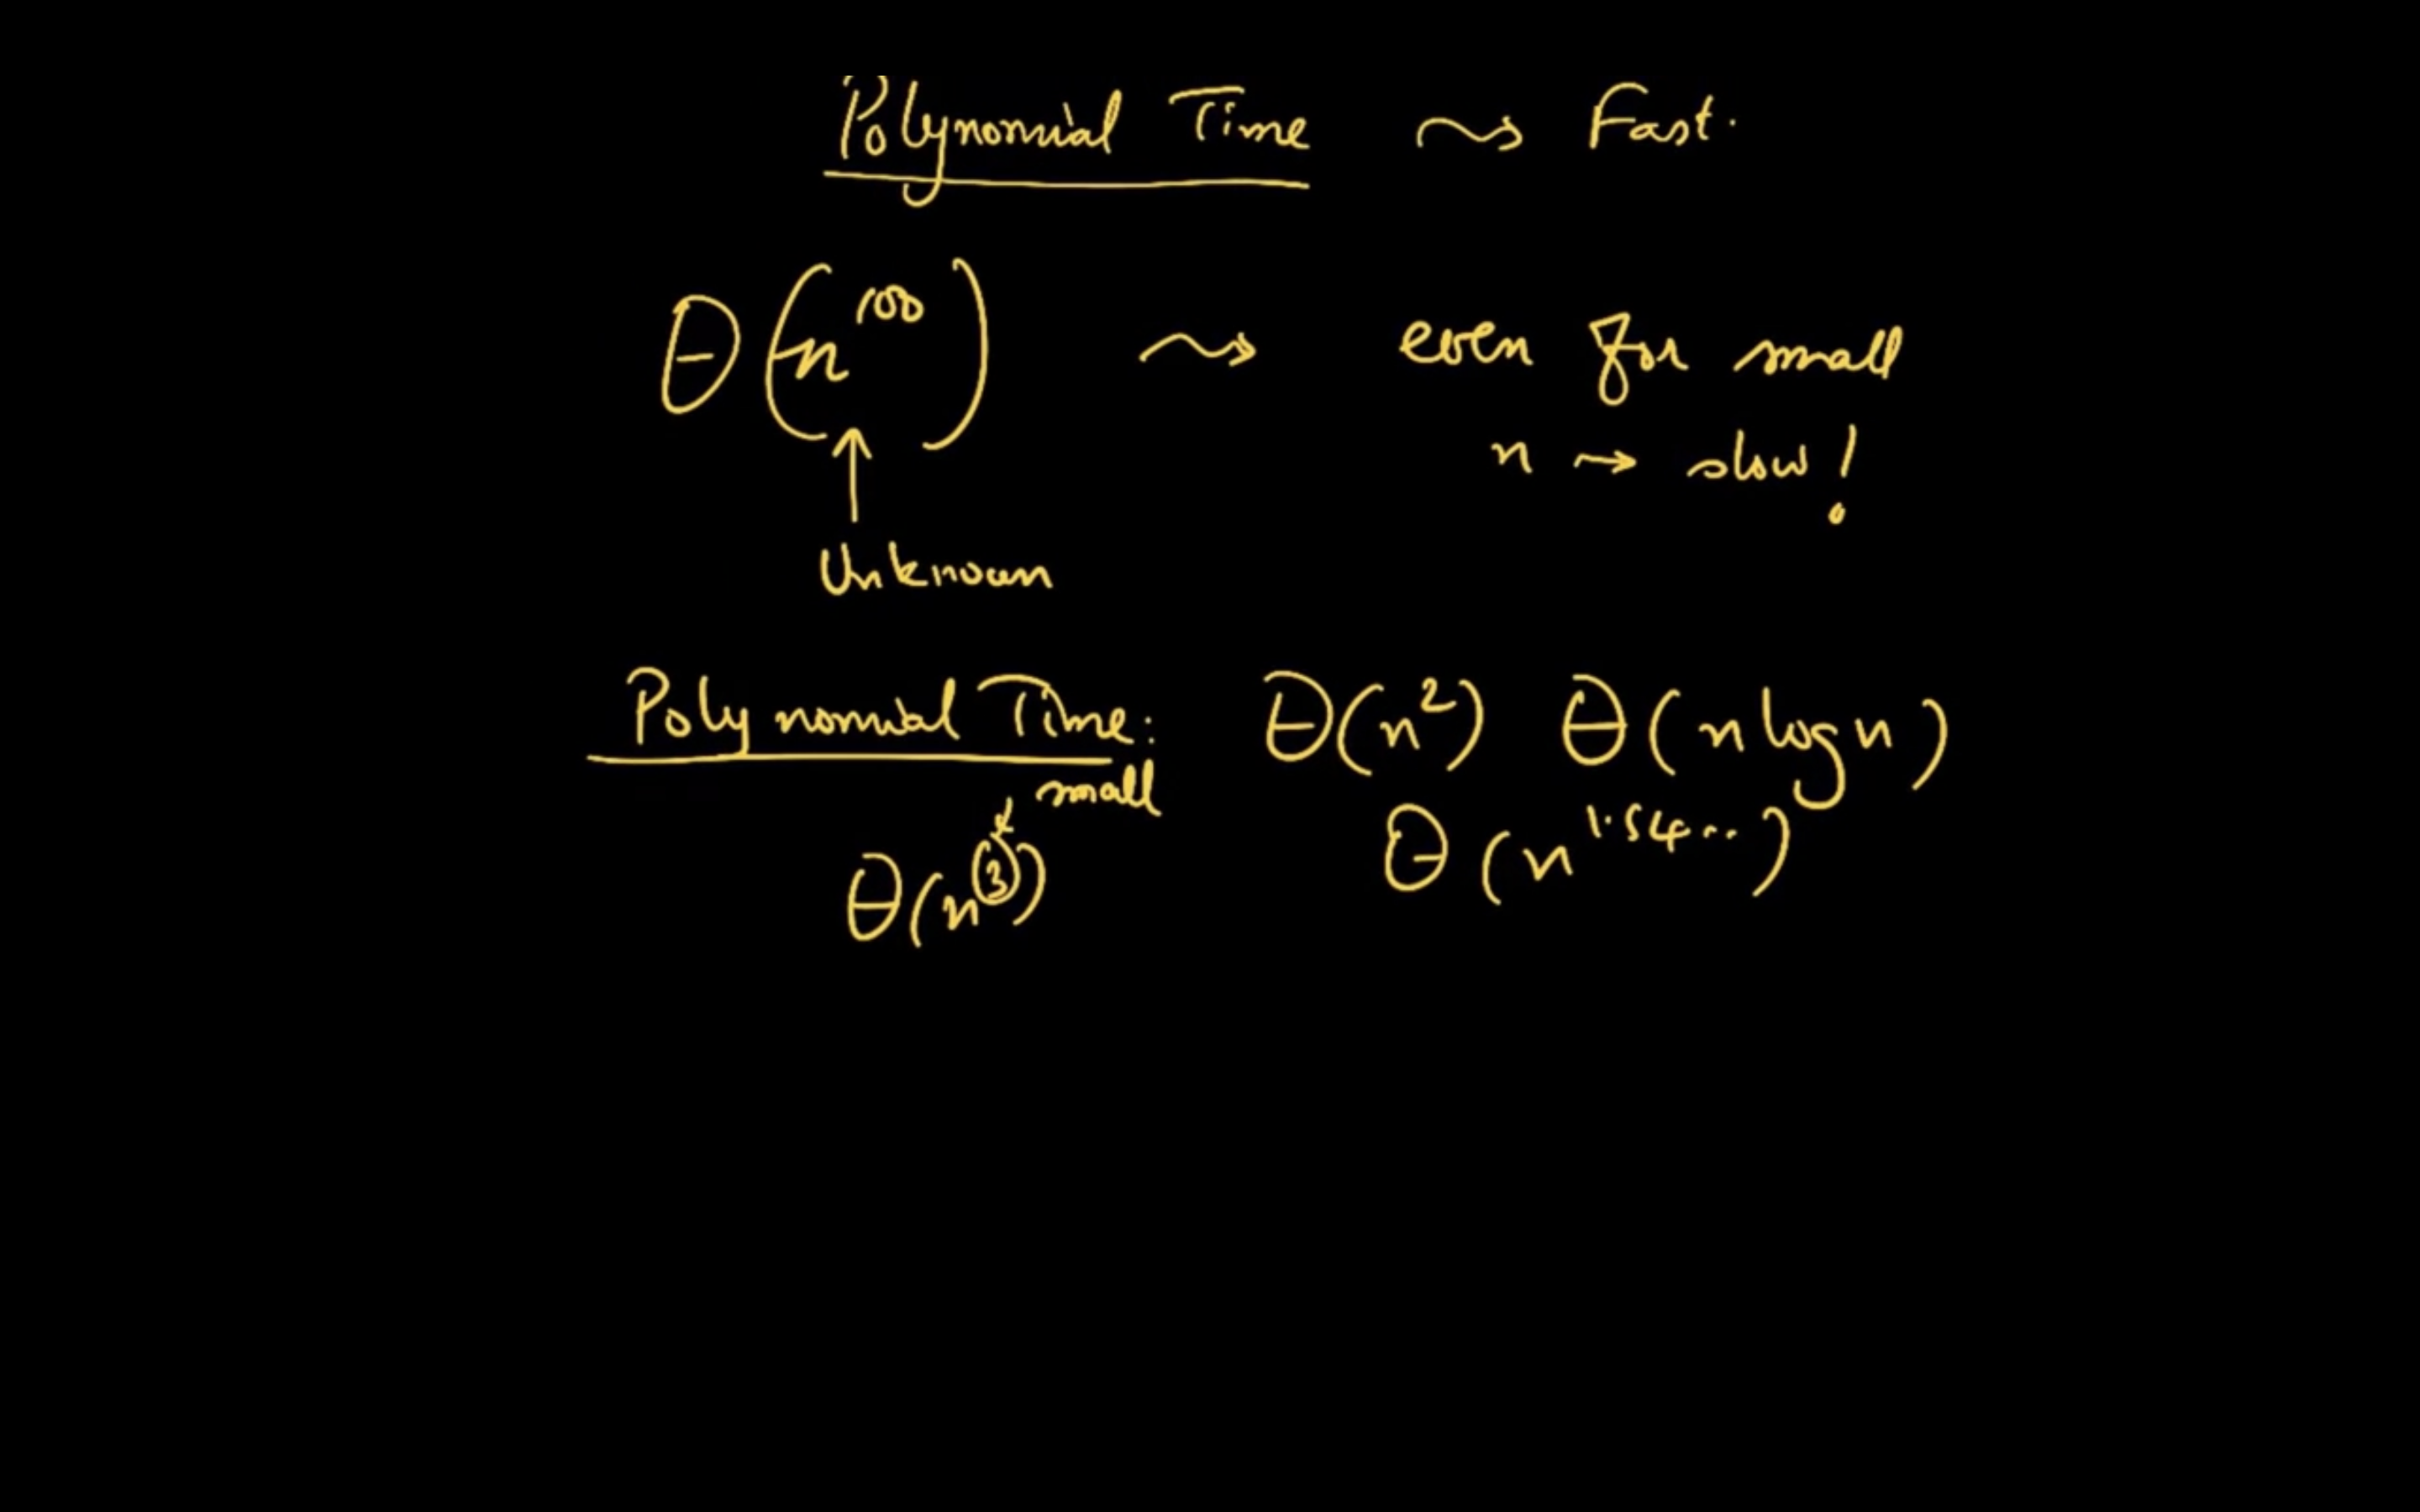 Polynomial Time ⇝ Fast.
Θ(n^100) ⇝ even for small
n → slow!
↑
Unknown
Polynomial Time: Θ(n^2) Θ(n log n)
small
Θ(n^3) Θ(n^1.54..)